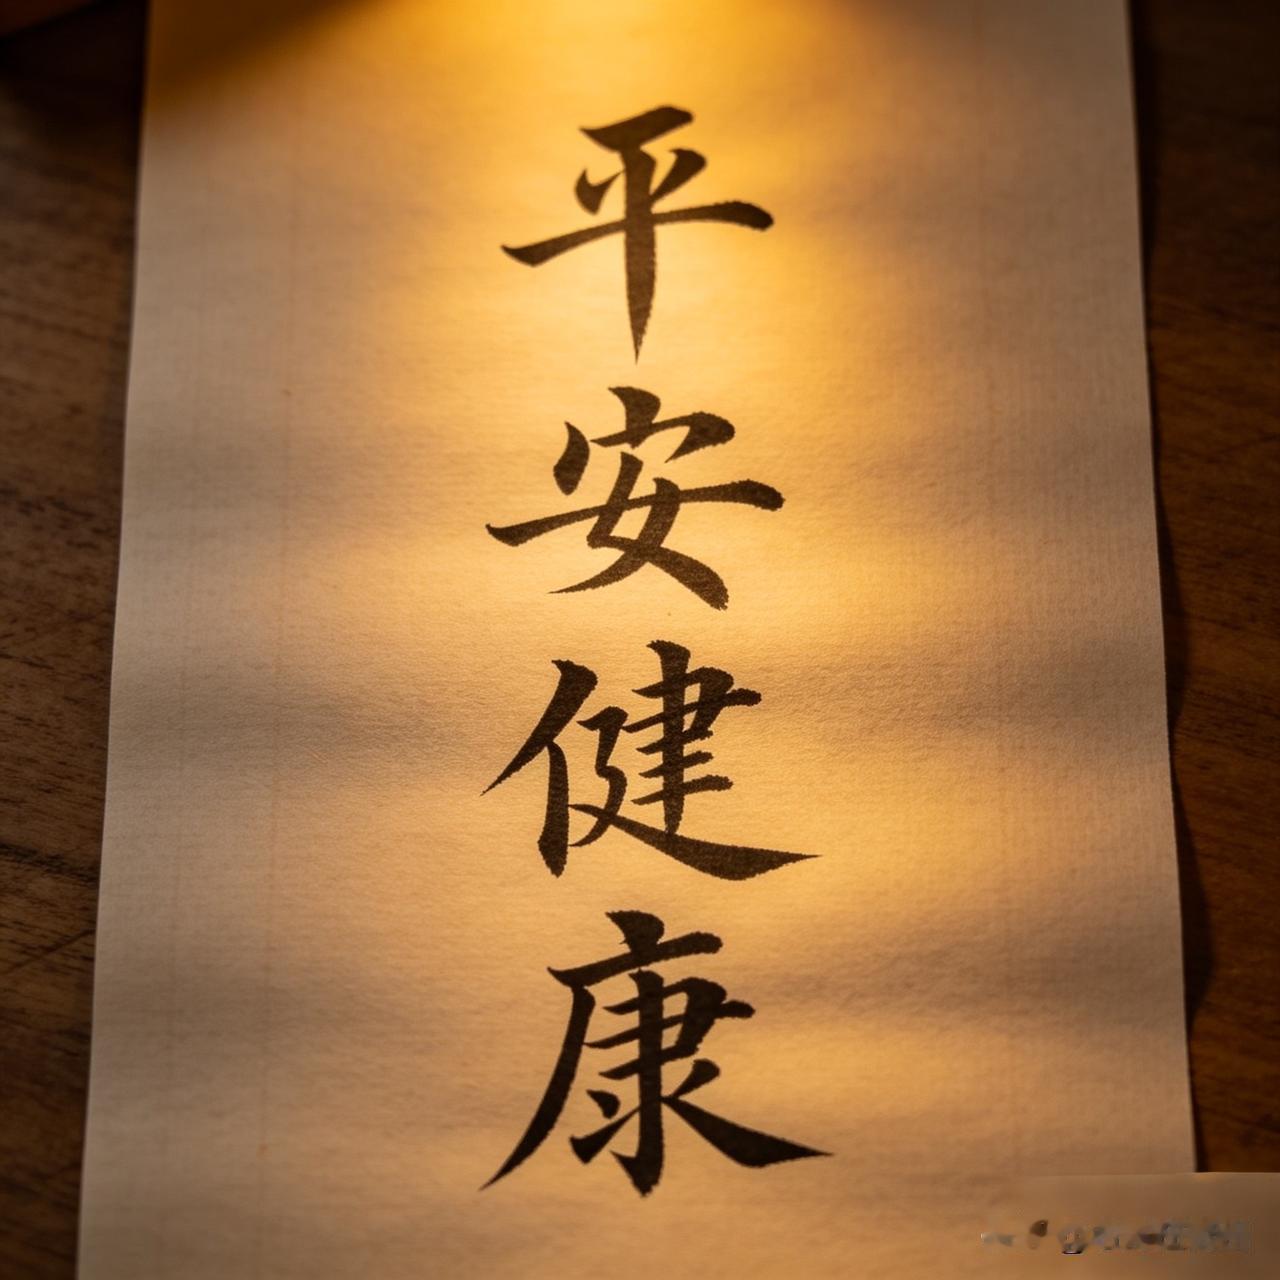 平安健康